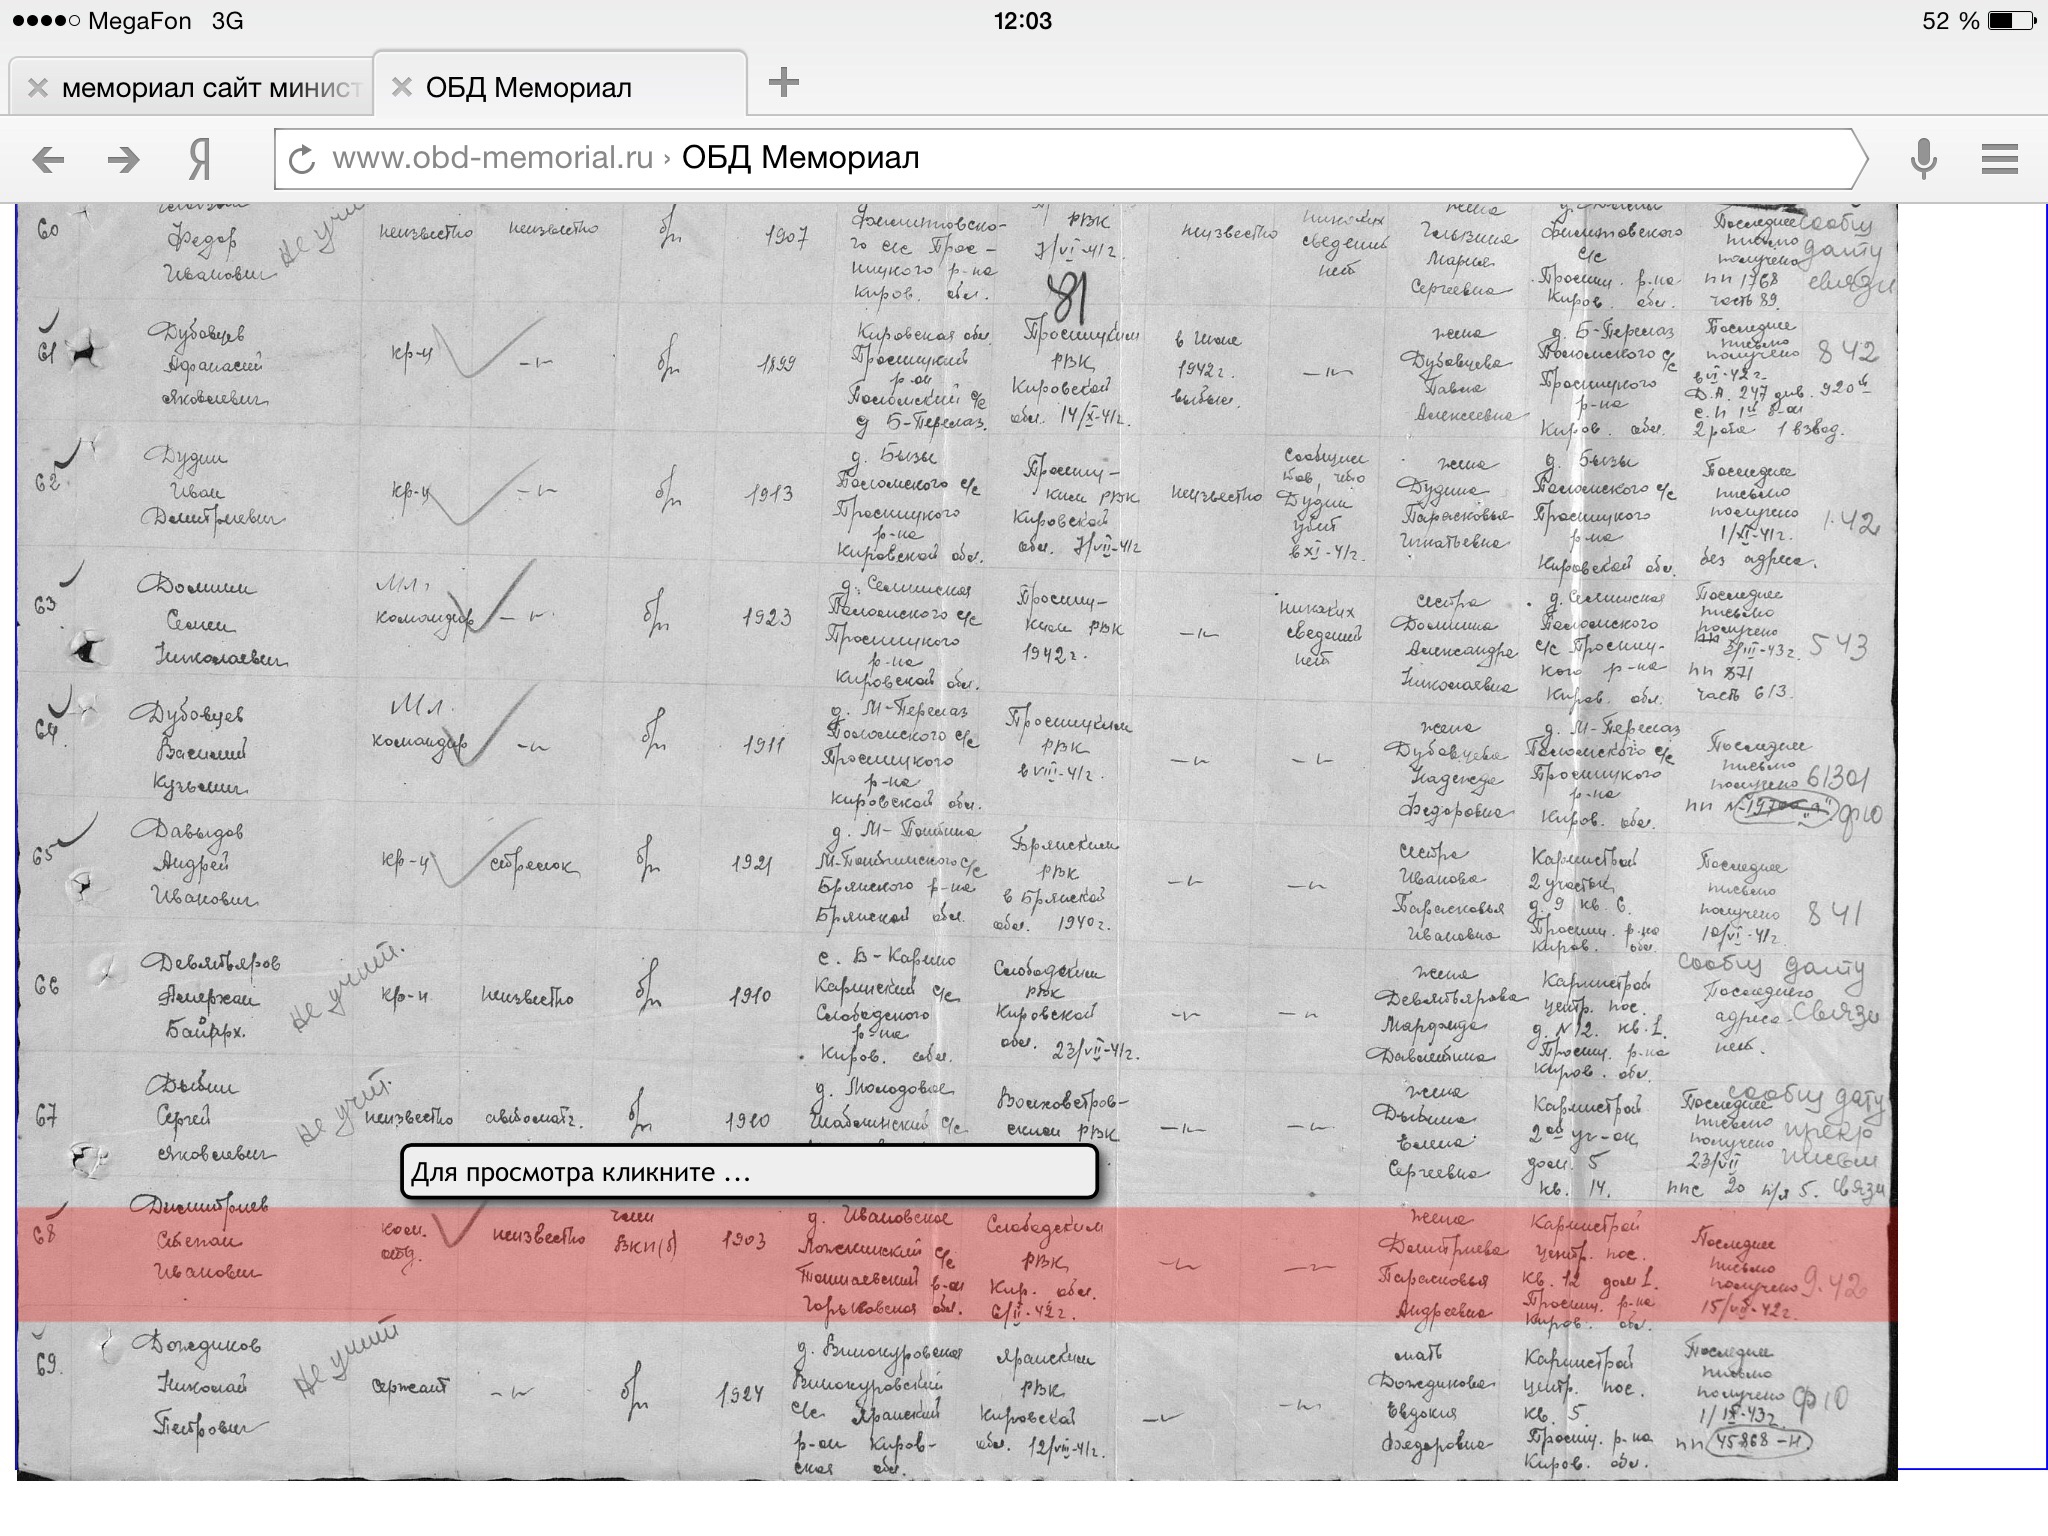 MegaFon 3G 12:03 52 %
мемориал сайт минист ОБД Мемориал
www.obd-memorial.ru › ОБД Мемориал
60
Федор
Иванович
не учит
неизвестно неизвестно б/п 1907
Просницкого р-на
Киров. обл.
РВК
7/VI-41г.
неизвестно
никаких
сведений
нет
жена
Мария
Сергеевна
с/с
Просниц. р-на
Киров. обл.
Последнее
письмо
получено
пп 1768
часть 89.
сообщ
дату
связи
81
61
Дубовцев
Афанасий
Яковлевич
кр-ц -"- б/п 1899
Кировская обл.
Просницкий
р-он
Поломский с/с
д Б-Перелаз.
Просницким
РВК
Кировской
обл. 14/X-41г.
в июне
1942г.
выбыл.
-"-
жена
Дубовцева
Павла
Алексеевна
д. Б-Перелаз
Поломского с/с
Просницкого
р-на
Киров. обл.
Последнее
письмо
получено
в VI-42г.
Д.А. 247 див. 920й
2 рота 1 взвод.
8 42
62
Дудин
Иван
Дмитриевич
кр-ц -"- б/п 1913
д. Бызы
Поломского с/с
Просницкого
р-на
Кировской обл.
Просниц-
ким РВК
Кировской
обл. 7/VII-41г
неизвестно
Дудин
убит
в XI-41г.
жена
Дудина
Парасковья
Игнатьевна
д. Бызы
Поломского с/с
Просницкого
р-на
Кировской обл.
Последнее
письмо
получено
1/XI-41г.
без адреса.
1.42
63
Домнин
Семен
Николаевич
Мл.
командир -"- б/п 1923
д. Селинская
Поломского с/с
Просницкого
р-на
Кировской обл.
Просниц-
ким РВК
1942г.
-"-
никаких
сведений
нет
сестра
Домнина
Александра
Николаевна
д. Селинская
Поломского
с/с Просниц-
кого р-на
Киров. обл.
Последнее
письмо
получено
5/III-43г.
пп 871
часть 613.
5 43
64.
Дубовцев
Василий
Кузьмич
Мл.
командир -"- б/п 1911
д. М-Перелаз
Поломского с/с
Просницкого
р-на
Кировской обл.
Просницким
РВК
в VIII-41г.
-"- -"-
жена
Дубовцева
Надежда
Федоровна
д. М-Перелаз
Поломского с/с
Просницкого
р-на
Киров. обл.
Последнее
письмо
получено
пп
61301
65
Давыдов
Андрей
Иванович
кр-ц стрелок б/п 1921
Брянского р-на
Брянской обл.
Брянским
РВК
в Брянской
обл. 1940г.
-"- -"-
сестра
Иванова
Парасковья
Ивановна
Каринстрой
2 участок
д. 9 кв. 6.
Просниц. р-на
Киров. обл.
Последнее
письмо
получено
10/VI-41г.
8 41
66
Девятьяров
не учит.
кр-ц неизвестно б/п 1910
с. В-Карино
Каринский с/с
Слободского
р-на
Киров. обл.
Слободским
РВК
Кировской
обл. 23/VII-41г.
-"- -"-
жена
Девятьярова
Каринстрой
центр. пос.
д. №12. кв. 1.
Просниц. р-на
Киров. обл.
сообщ дату
Последнего
адреса
нет.
связи
67
Дывин
Сергей
Яковлевич
не учит.
неизвестно автомат. б/п 1910
д. Молодовое
РВК
-"- -"-
жена
Елена
Сергеевна
Каринстрой
2ой уч-ок
дом. 5
кв. 14.
Последнее
письмо
получено
23/VII
сообщ дату
связи
Для просмотра кликните ...
68
Дмитриев
Степан
Иванович
ком.
отд.
неизвестно
член
ВКП(б)
1903
д. Ивановское
Ложкинский с/с
Тоншаевский р-он
Горьковская обл.
Слободским
РВК
Кир. обл.
6/II-42г.
-"- -"-
жена
Дмитриева
Парасковья
Андреевна
Каринстрой
центр. пос.
кв. 12 дом 1.
Просниц. р-на
Киров. обл.
Последнее
письмо
получено
15/VI-42г.
9.42
69.
Дождиков
Николай
Петрович
не учит
сержант -"- б/п 1924
д. Винокуровская
Винокуровский
с/с Яранский
р-он Киров-
ская обл.
Яранским
РВК
Кировской
обл. 12/VIII-41г.
-"- -"-
мать
Дождикова
Евдокия
Федоровна
Каринстрой
центр. пос.
кв. 5.
Просниц. р-на
Киров. обл.
Последнее
письмо
получено
1/IX-43г.
пп 45868-Н.